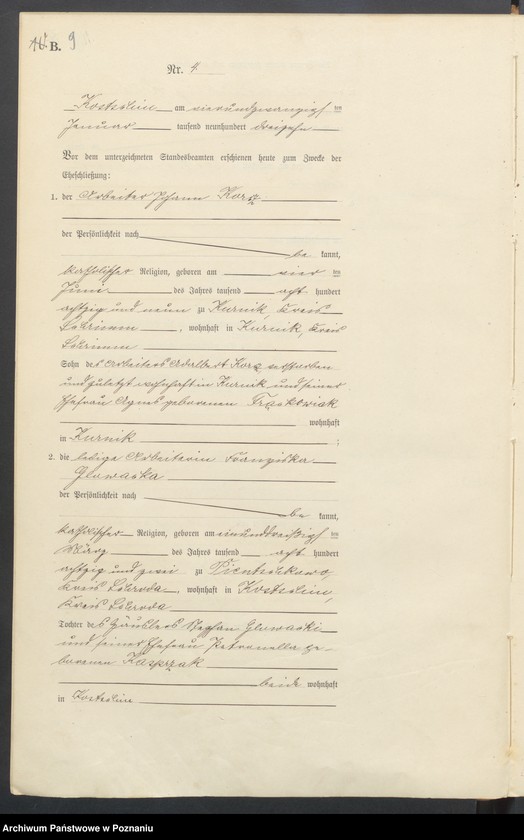 B. 9
Nr. 4
Kosteline am vierundzwanzigsten
Januar tausend neunhundert dreizehn
Vor dem unterzeichneten Standesbeamten erschienen heute zum Zwecke der
Eheschließung:
1. der Arbeiter Johann Korz
der Persönlichkeit nach
be kannt,
katholischer Religion, geboren am vierten
Juni des Jahres tausend acht hundert
achtzig und neun zu Kurnik, Kreis
, wohnhaft in Kurnik, Kreis
Sohn des Arbeiters Adalbert Korz verstorben
und zuletzt wohnhaft in Kurnik und seiner
Ehefrau Agnes geborenen
wohnhaft
in Kurnik ;
2. die ledige Arbeiterin Franziska
Glowaska
der Persönlichkeit nach
be kannt,
katholischer Religion, geboren am einunddreißigsten
März des Jahres tausend acht hundert
achtzig und zwei zu
Kreis Schroda, wohnhaft in Kosteline,
Kreis Schroda
Tochter des Häuslers Stephan Glowaski
und seiner Ehefrau Petronella ge-
borenen Kasprzak
beide wohnhaft
in Kosteline
Archiwum Państwowe w Poznaniu